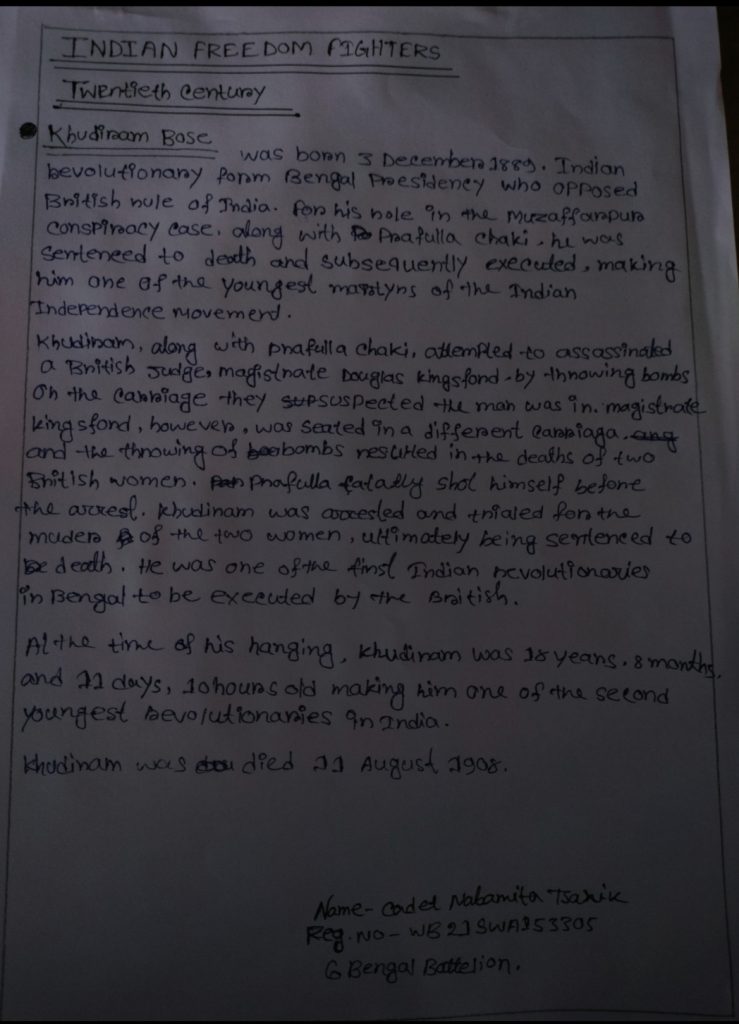 INDIAN FREEDOM FIGHTERS
Twentieth Century
Khudiram Bose
was born 3 December 1889. Indian
bevolutionary form Bengal Presidency who opposed
British rule of India. For his role in the Muzaffarpur
conspiracy case, along with Prafulla Chaki, he was
sentenced to death and subsequently executed, making
him one of the youngest martyrs of the Indian
Independence Movement.
Khudiram, along with Prafulla Chaki, attempted to assassinated
a British Judge, magistrate Douglas Kingsford by throwing bombs
on the carriage they suspected the man was in. magistrate
kingsford, however, was seated in a different carriaga.
and the throwing of bombs resulted in the deaths of two
British women. Prafulla fatadly shot himself before
the arrest. Khudiram was arrested and trialed for the
muder of the two women, ultimately being sentenced to
death. He was one of the first Indian revolutionaries
in Bengal to be executed by the British.
At the time of his hanging, Khudiram was 18 years. 8 months.
and 11 days, 10 hours old making him one of the second
youngest bevolutionaries in India.
Khudiram was died 11 August 1908.
Name- Cadet Nabamita
Reg. No - WB21SWA153305
6 Bengal Battelion.